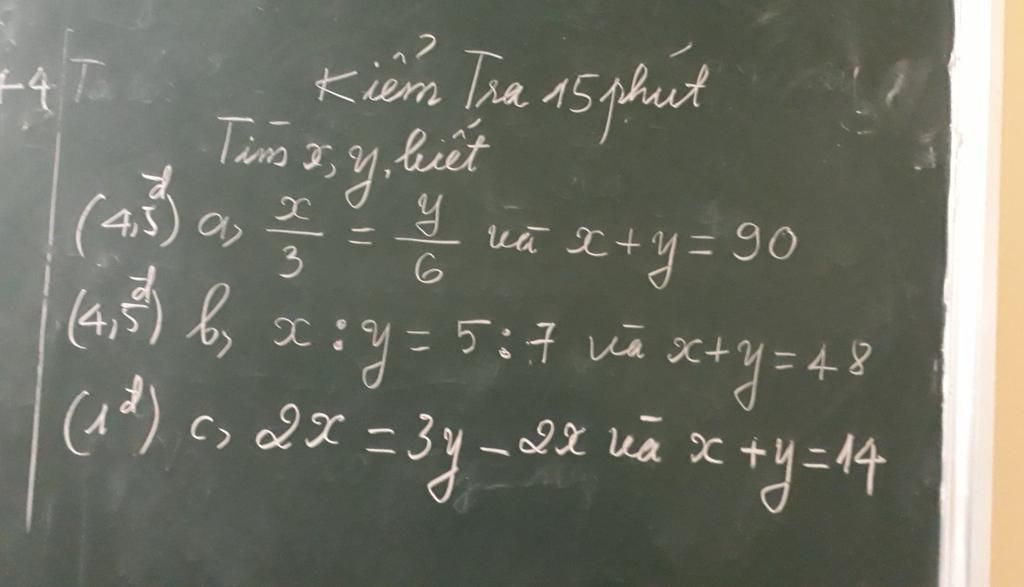 +4 T
Kiểm Tra 15 phút
Tìm x, y, biết
(4,5đ) a, x/3 = y/6 và x + y = 90
(4,5đ) b, x : y = 5 : 7 và x + y = 48
(1đ) c, 2x = 3y - 2x và x + y = 14